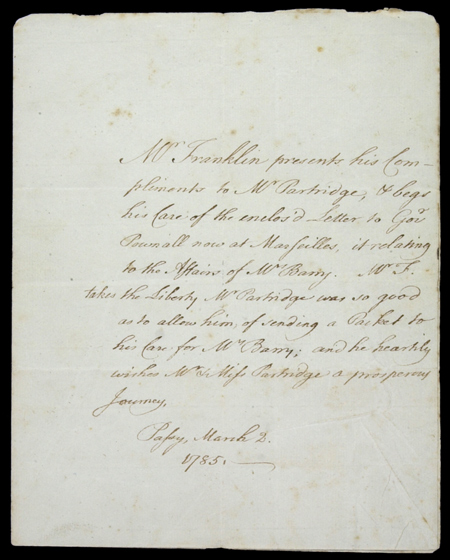 Mr Franklin presents his Com-
pliments to Mr Partridge, & begs
his Care of the enclos'd Letter to Govr
Pownall now at Marseilles, it relating
to the Affairs of Mrs Barry. Mr F.
takes the Liberty, Mr Partridge was so good
as to allow him, of sending a Packet to
his Care for Mrs Barry; and he heartily
wishes Mr & Miss Partridge a prosperous
Journey.
Passy, March 2.
1785.